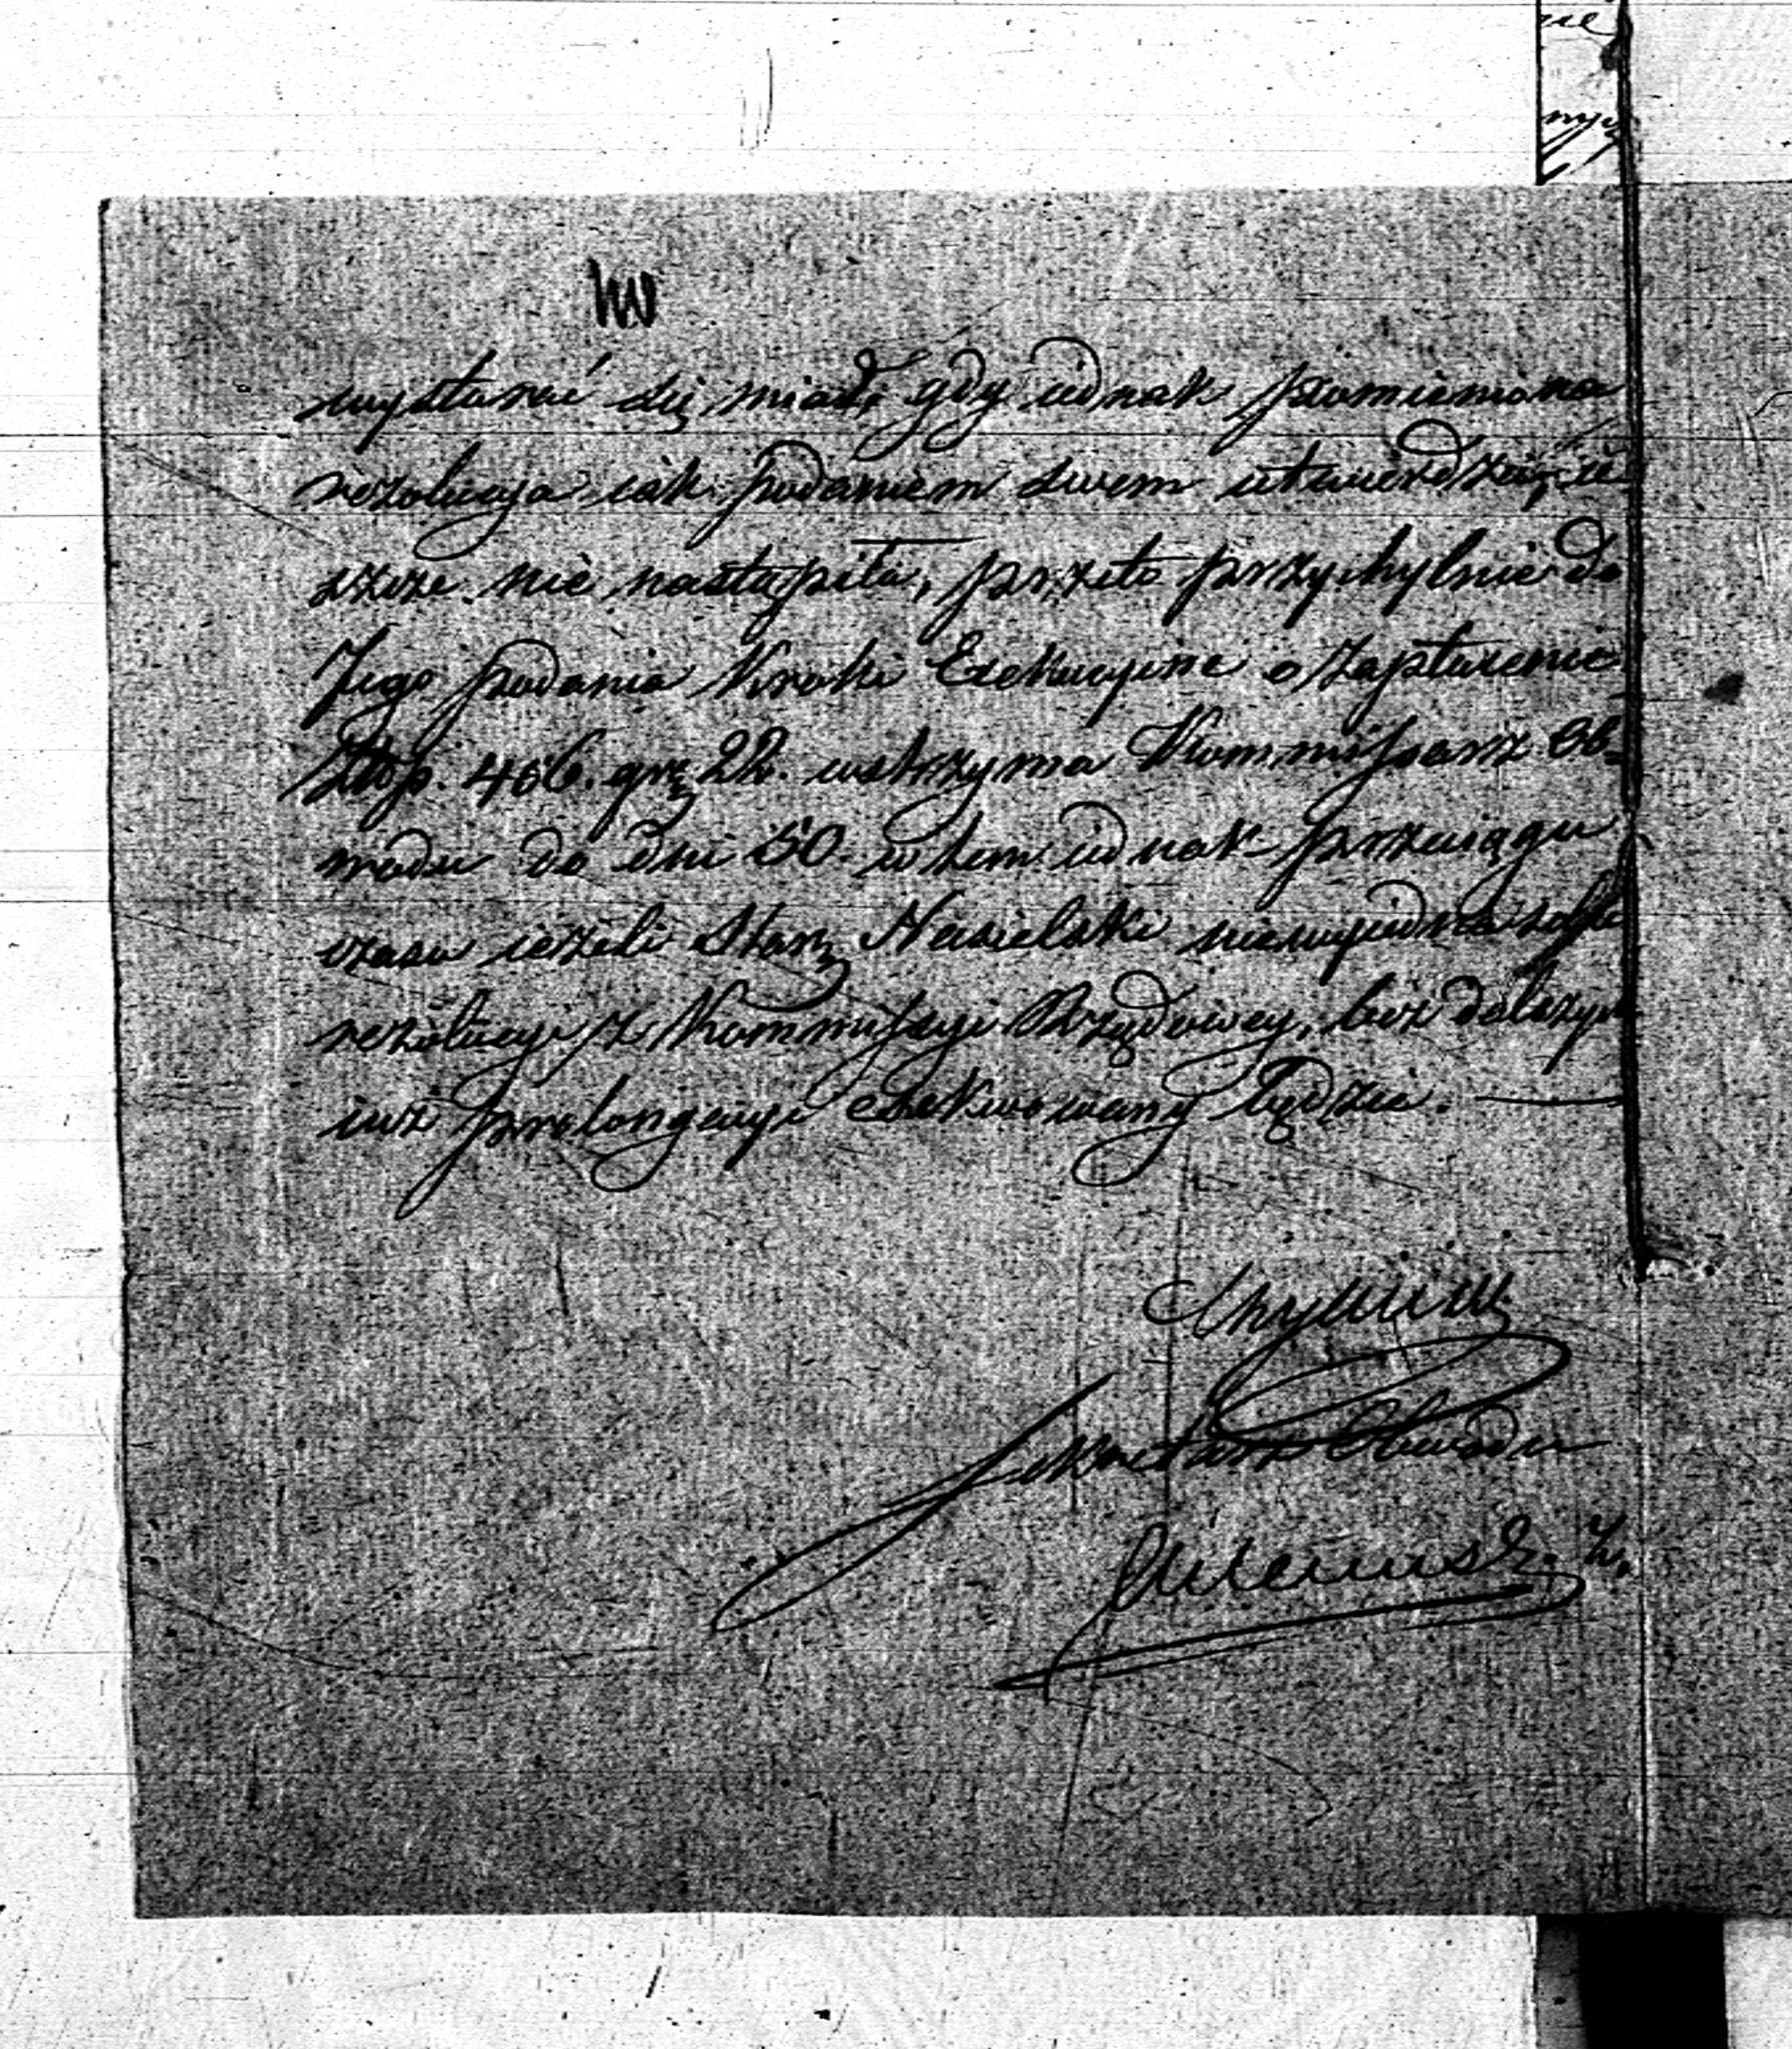 wystarać się miał, gdy iednak pomieniona
rezolucyja iak podaniem swem utwierdza, ie-
szcze nie nastąpiła, przeto przychylnie do
Jego podania Kroki Exekucyine o zapłacenie
Złtp. 406. gr. 22. wstrzyma Kommissarz Ob-
wodu do dni 50. w tem iednak przeciągu
czasu ieżeli Starz. Nasielski niewyiedna sobie
rezolucyi z Kommissyi Rządowey, bez dalszych
iuż prolongacyi exekwowany będzie.
Sekretarz Obwodu